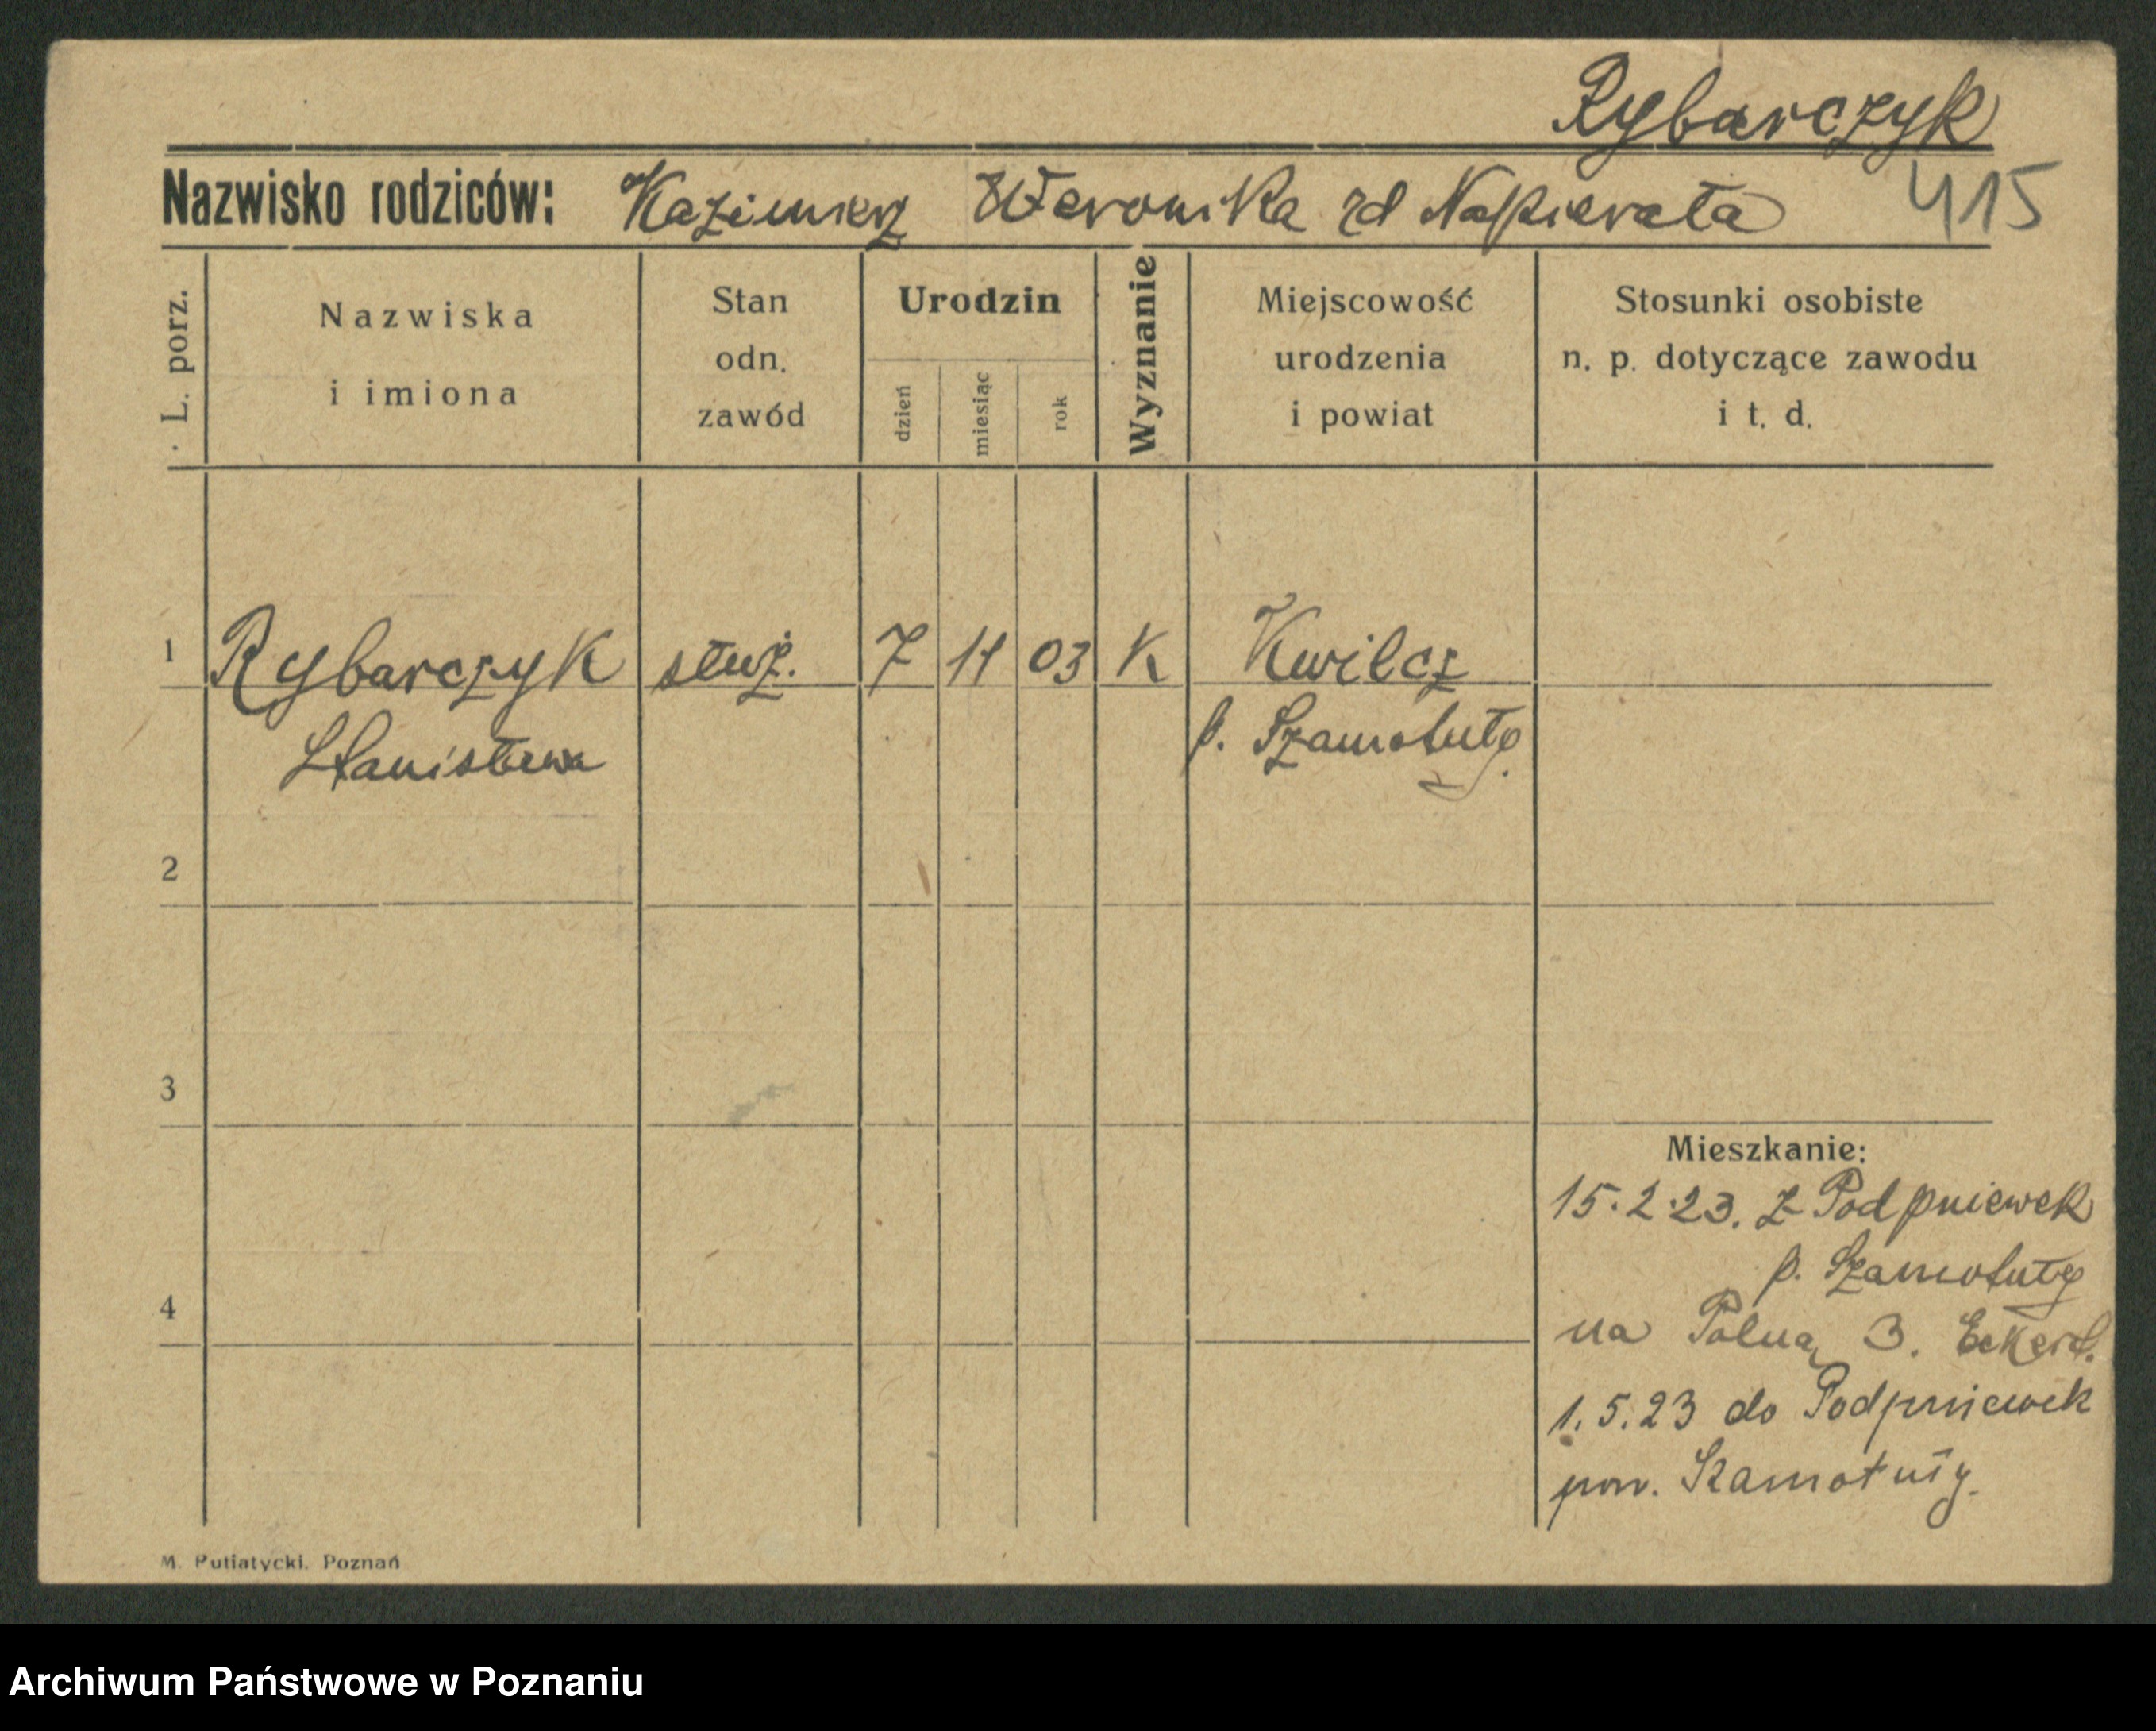 Rybarczyk
Nazwisko rodziców: Kazimierz Weronika zd Napierała 415
L. porz.
Nazwiska
i imiona
Stan
odn.
zawód
Urodzin
dzień
miesiąc
rok
Wyznanie
Miejscowość
urodzenia
i powiat
Stosunki osobiste
n. p. dotyczące zawodu
i t. d.
1 Rybarczyk służ. 7 11 03 K Kwilcz
Stanisława p. Szamotuły
2
3
4
Mieszkanie:
15.2.23. z Podpniewek
p. Szamotuły
na Polną 3. Eckert.
1.5.23 do Podpniewek
pow. Szamotuły.
M. Putiatycki. Poznań
Archiwum Państwowe w Poznaniu